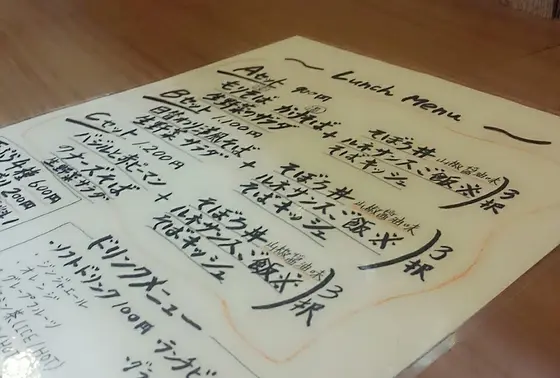 〜 Lunch Menu 〜
Aセット 900円
もりそば or かけそば
生野菜サラダ
+
そぼろ丼 山椒醤油味
ルネサンスご飯※
そばキッシュ
3択
Bセット 1,100円
生野菜サラダ
+
そぼろ丼 山椒醤油味
ルネサンスご飯※
そばキッシュ
3択
Cセット 1,200円
バジルとホピーマン
ツナーズそば
生野菜サラダ
+
そぼろ丼 山椒醤油味
ルネサンスご飯※
そばキッシュ
3択
600円
200円
ドリンクメニュー
・ソフトドリンク 100円
・ジンジャエール
・オレンジ
・グレープフルーツ
(ICE/HOT)
・ランチビ
・グラ